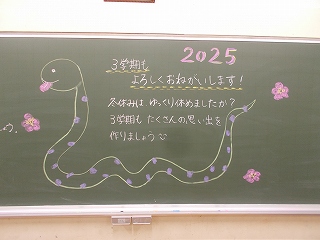 2025
3学期も
よろしくおねがいします！
冬休みは ゆっくり休めましたか？
3学期も たくさんの思い出を
作りましょう
の。